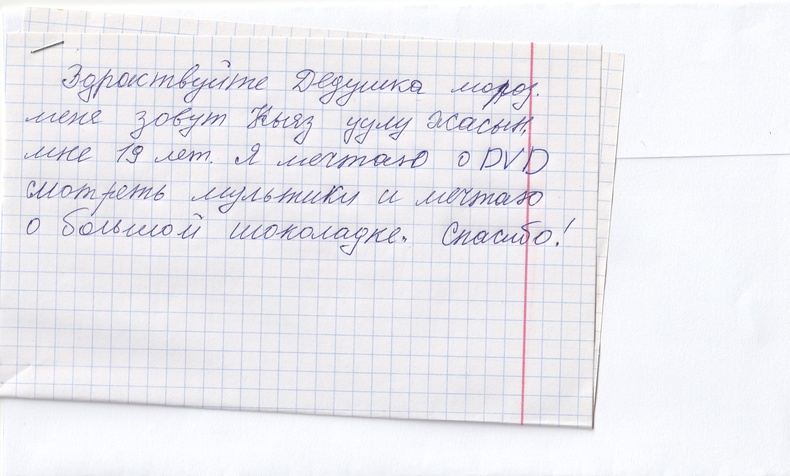 Здраствуйте Дедушка мороз.
мене зовут Кыяз уулу Жасын,
мне 19 лет. Я мечтаю о DVD
смотреть мультики и мечтаю
о большой шоколадке. Спасибо!